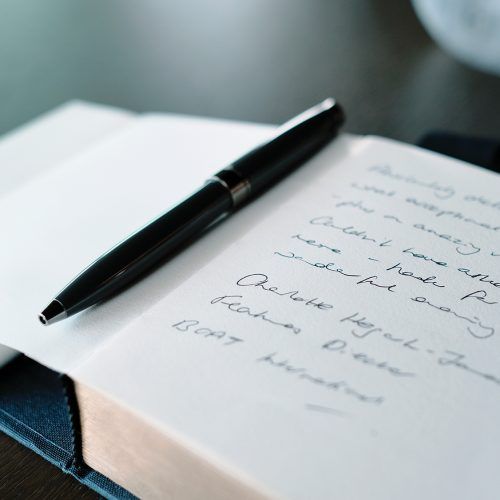 Absolutely
most exceptional
- plus an amazing
Couldn't have
more - made for
wonderful evening
Charlotte Hogarth-Jone
Features Director
BOAT International